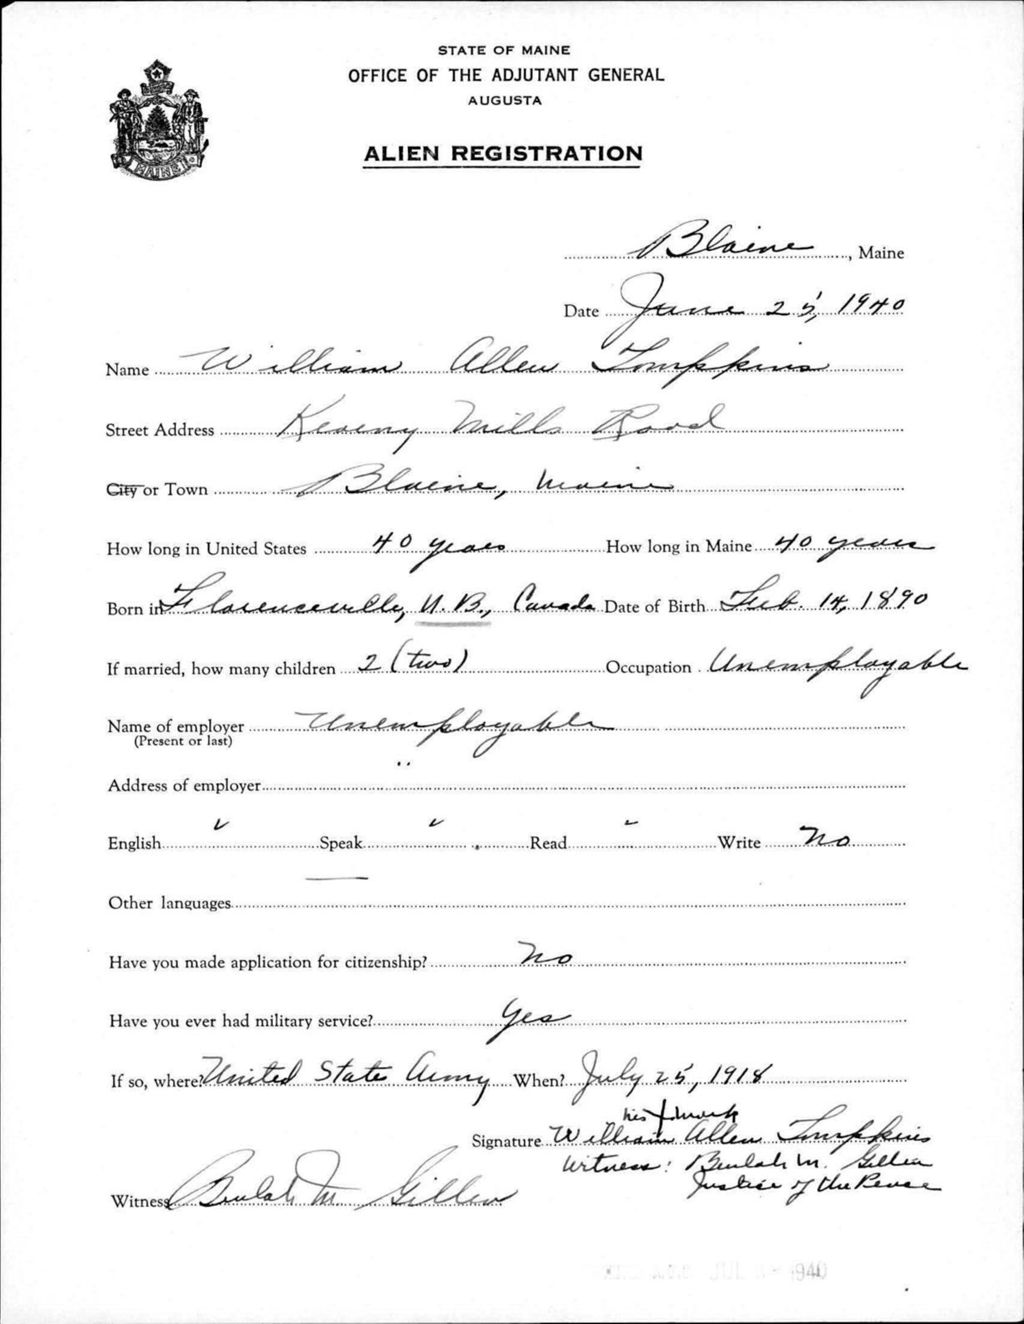 STATE OF MAINE
OFFICE OF THE ADJUTANT GENERAL
AUGUSTA
MAINE
ALIEN REGISTRATION
Blaine, Maine
Date June 25, 1940
Name William Allen Tompkins
Street Address Keseny Mills Road
City or Town Blaine, Maine
How long in United States 40 years How long in Maine 40 years
Born in Florenceville, N.B., Canada Date of Birth Feb. 14, 1890
If married, how many children 2 (two) Occupation Unemployable
Name of employer Unemployable
(Present or last)
Address of employer
English ✓ Speak ✓ Read - Write No
Other languages
Have you made application for citizenship? No
Have you ever had military service? Yes
If so, where? United State Army When? July 25, 1918
his X mark
Signature William Allen Tompkins
Witness: Beulah M. Gillen
Justice of the Peace
Witness Beulah M. Gillen
JUL 1940